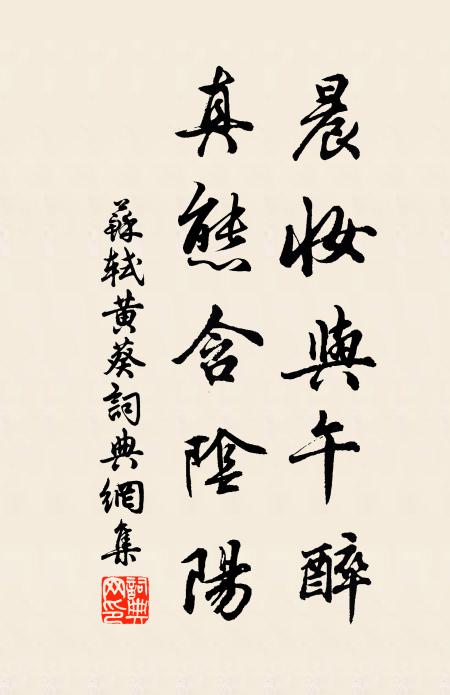 晨妆與午醉
真態含陰陽
蘇軾黃葵詞典網集
詞典网印